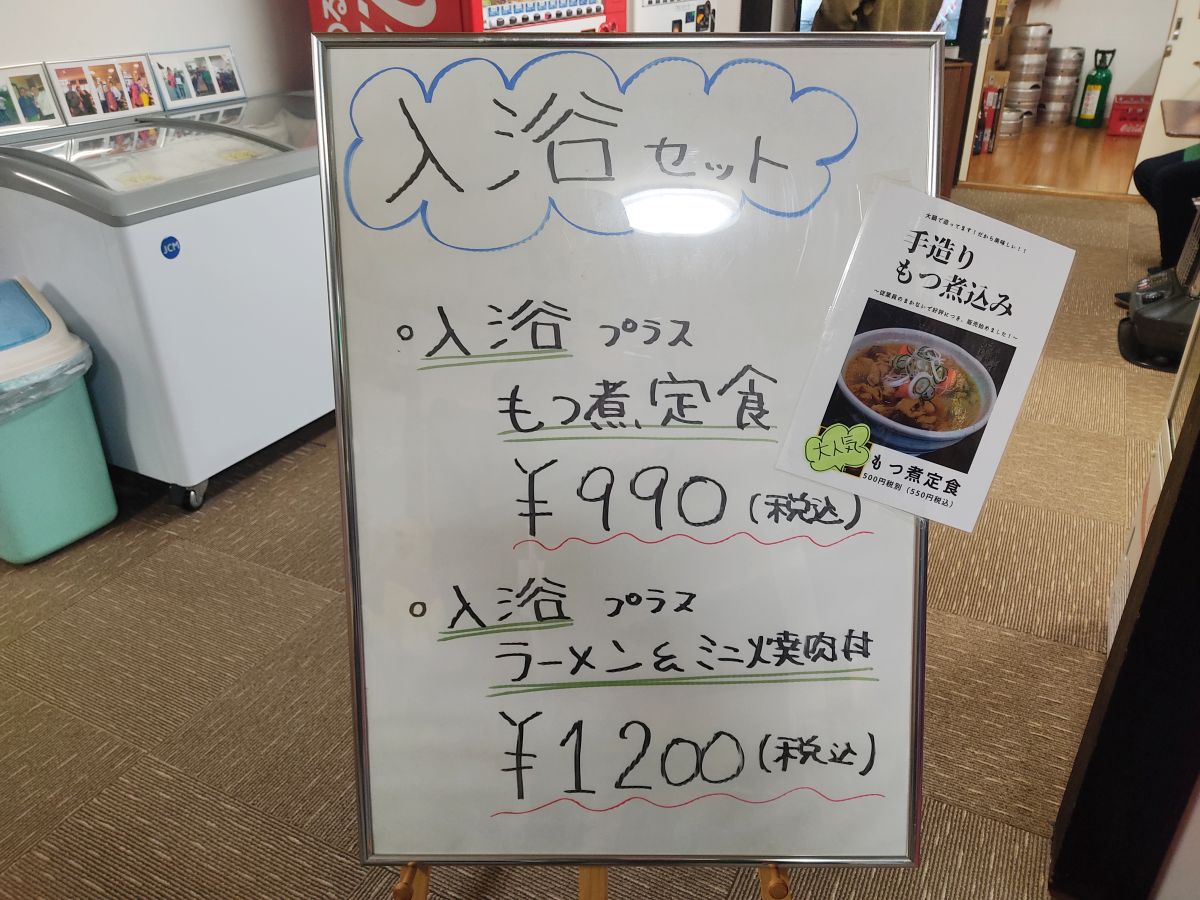 入浴セット
○入浴 プラス
もつ煮定食
¥990(税込)
○入浴 プラス
ラーメン&ミニ焼肉丼
¥1200(税込)
大鍋で造ってます!だから美味しい!!
手造り
もつ煮込み
～従業員のまかないで好評につき、販売始めました!～
大人気
もつ煮定食
500円税別(550円税込)
JCM